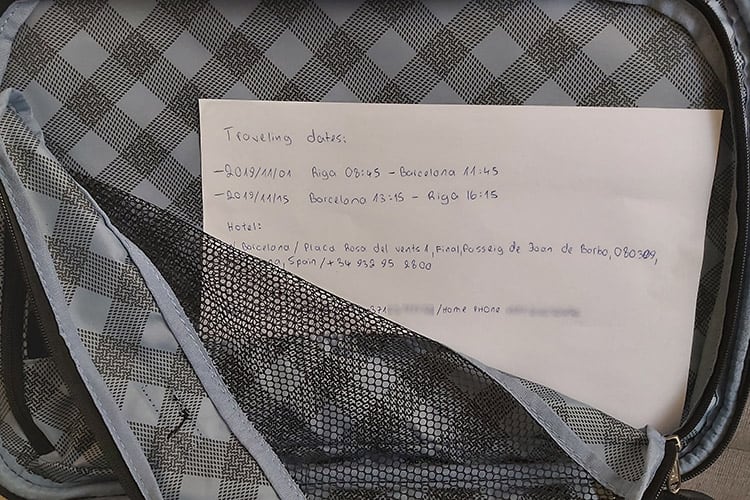 Traveling dates:
- 2019/11/01 Riga 08:45 - Barcelona 11:45
- 2019/11/15 Barcelona 13:15 - Riga 16:15
Hotel:
Barcelona / Placa Rosa del vents 1, Final, Passeig de Joan de Borbo, 080309,
Spain / +34 932 95 2800
371 / Home PHONE